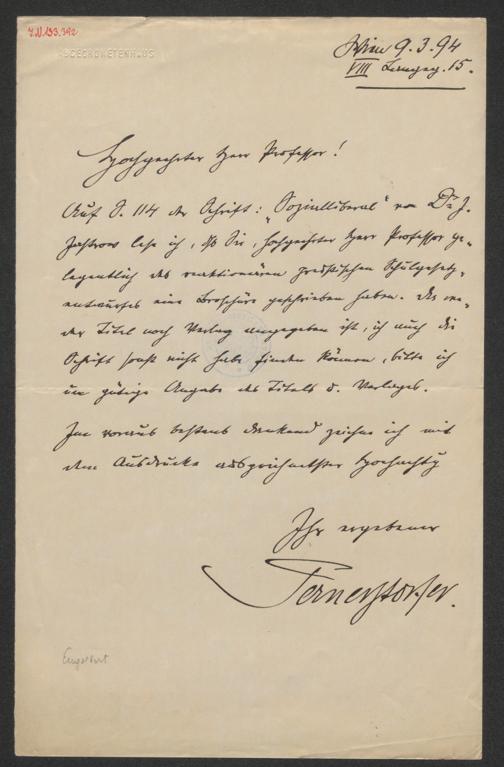 J.N. 193.392
ABGEORDNETENHAUS
Wien 9.3.94
VIII Langeg. 15.
Hochgeehrter Herr Professor!
Auf S. 114 der Schrift: „Sozialliberal“ von Dr. J.
Jastrow lese ich, daß Sie, hochgeehrter Herr Professor ge-
legentlich des reaktionären preußischen Schulgesetz-
entwurfes eine Broschüre geschrieben haben. Da we-
der Titel noch Verlag angegeben ist, ich auch die
Schrift sonst nicht habe finden können, bitte ich
um gütige Angabe des Titels u. Verlages.
Im voraus bestens dankend zeichne ich mit
dem Ausdrucke ausgezeichnetster Hochachtung
Ihr ergebener
Pernerstorfer.